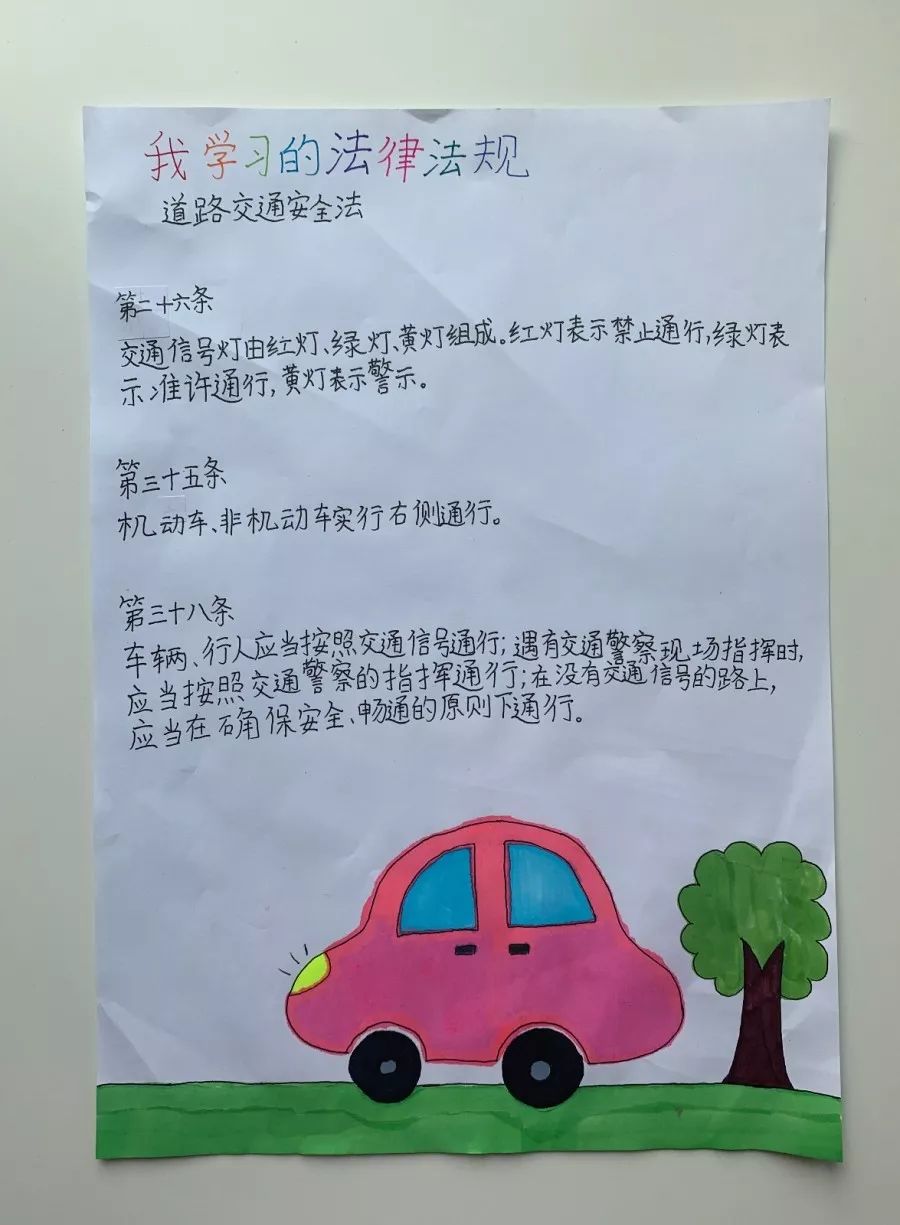 我学习的法律法规
道路交通安全法
第二十六条
交通信号灯由红灯、绿灯、黄灯组成。红灯表示禁止通行,绿灯表
示准许通行,黄灯表示警示。
第三十五条
机动车、非机动车实行右侧通行。
第三十八条
车辆、行人应当按照交通信号通行;遇有交通警察现场指挥时,
应当按照交通警察的指挥通行;在没有交通信号的路上,
应当在确保安全、畅通的原则下通行。